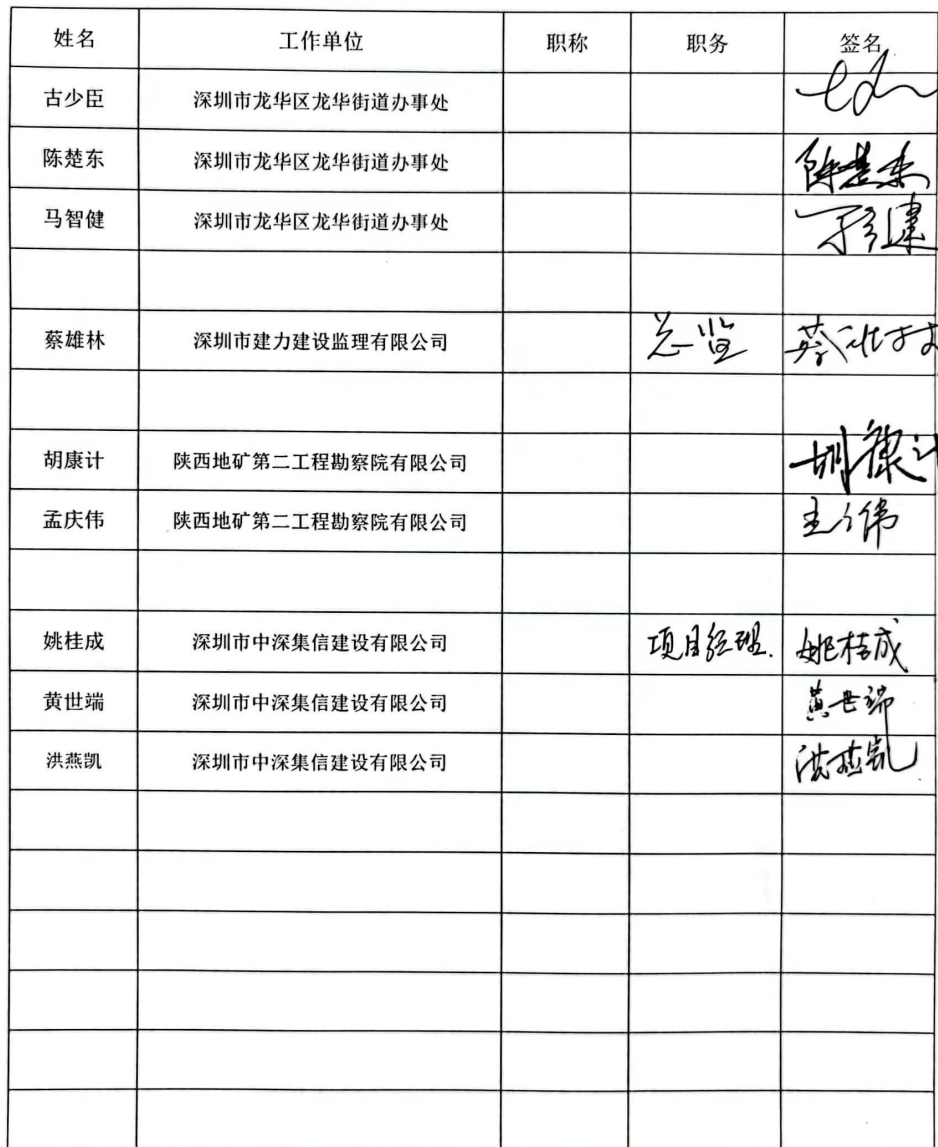 姓名 工作单位 职称 职务 签名
古少臣 深圳市龙华区龙华街道办事处
陈楚东 深圳市龙华区龙华街道办事处 陈楚东
马智健 深圳市龙华区龙华街道办事处
蔡雄林 深圳市建力建设监理有限公司 总监 蔡雄林
胡康计 陕西地矿第二工程勘察院有限公司 胡康计
孟庆伟 陕西地矿第二工程勘察院有限公司
姚桂成 深圳市中深集信建设有限公司 项目经理. 姚桂成
黄世端 深圳市中深集信建设有限公司 黄世端
洪燕凯 深圳市中深集信建设有限公司 洪燕凯